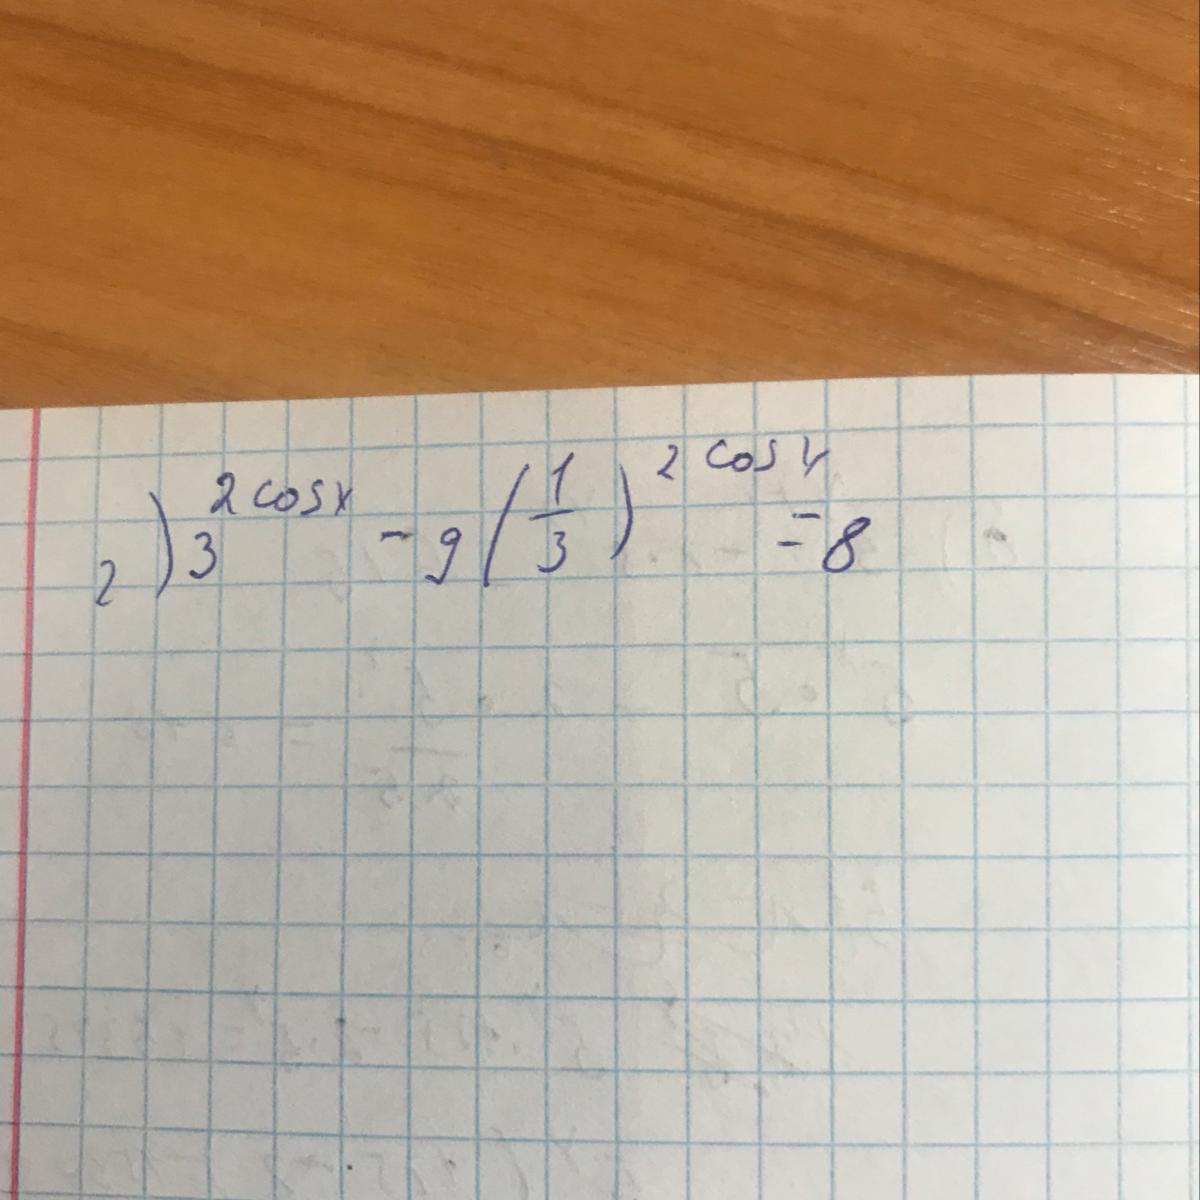 2) 3^{2 cos x} - 9 (1/3)^{2 cos x} = 8